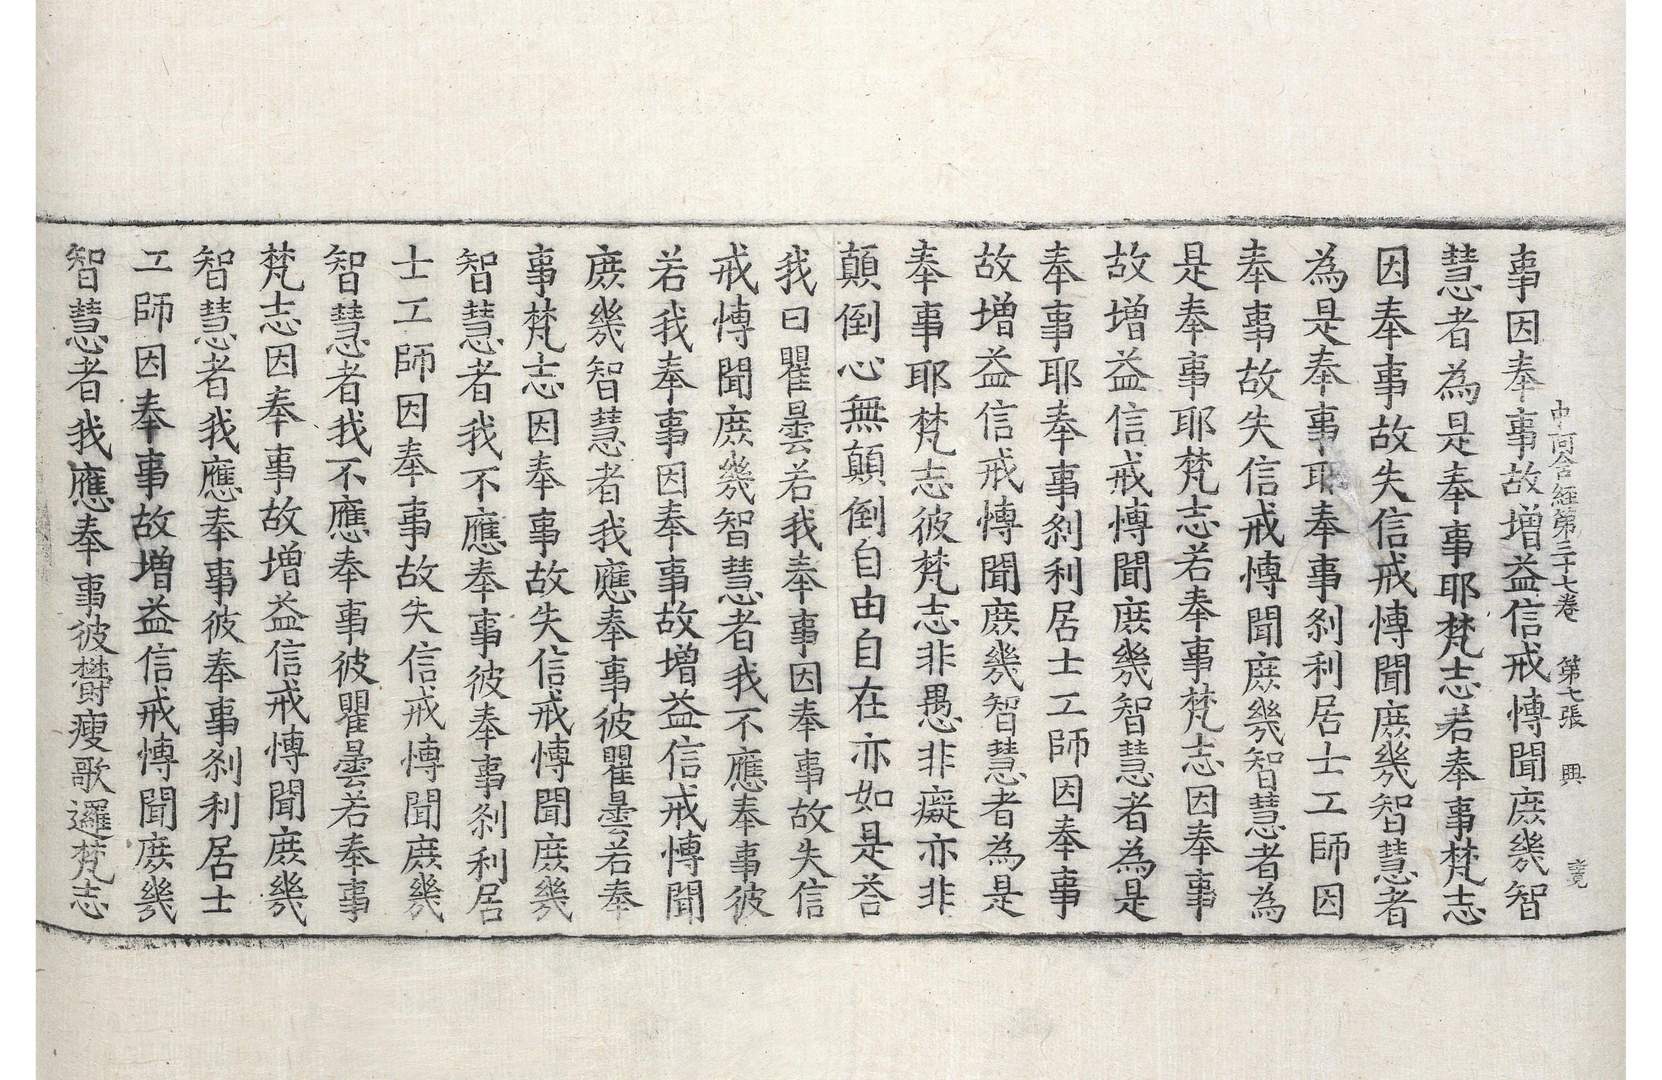 中阿含經第三十七卷　第七張　興
事因奉事故增益信戒慱聞庶幾智
慧者為是奉事耶梵志若奉事梵志
因奉事故失信戒慱聞庶幾智慧者
為是奉事耶奉事刹利居士工師因
奉事故失信戒慱聞庶幾智慧者為
是奉事耶梵志若奉事梵志因奉事
故增益信戒慱聞庶幾智慧者為是
奉事耶奉事刹利居士工師因奉事
故增益信戒慱聞庶幾智慧者為是
奉事耶梵志彼梵志非愚非癡亦非
顛倒心無顛倒自由自在亦如是荅
我曰瞿曇若我奉事因奉事故失信
戒慱聞庶幾智慧者我不應奉事彼
若我奉事因奉事故增益信戒慱聞
庶幾智慧者我應奉事彼瞿曇若奉
事梵志因奉事故失信戒慱聞庶幾
智慧者我不應奉事彼奉事刹利居
士工師因奉事故失信戒慱聞庶幾
智慧者我不應奉事彼瞿曇若奉事
梵志因奉事故增益信戒慱聞庶幾
智慧者我應奉事彼奉事刹利居士
工師因奉事故增益信戒慱聞庶幾
智慧者我應奉事彼欝瘦歌邏梵志